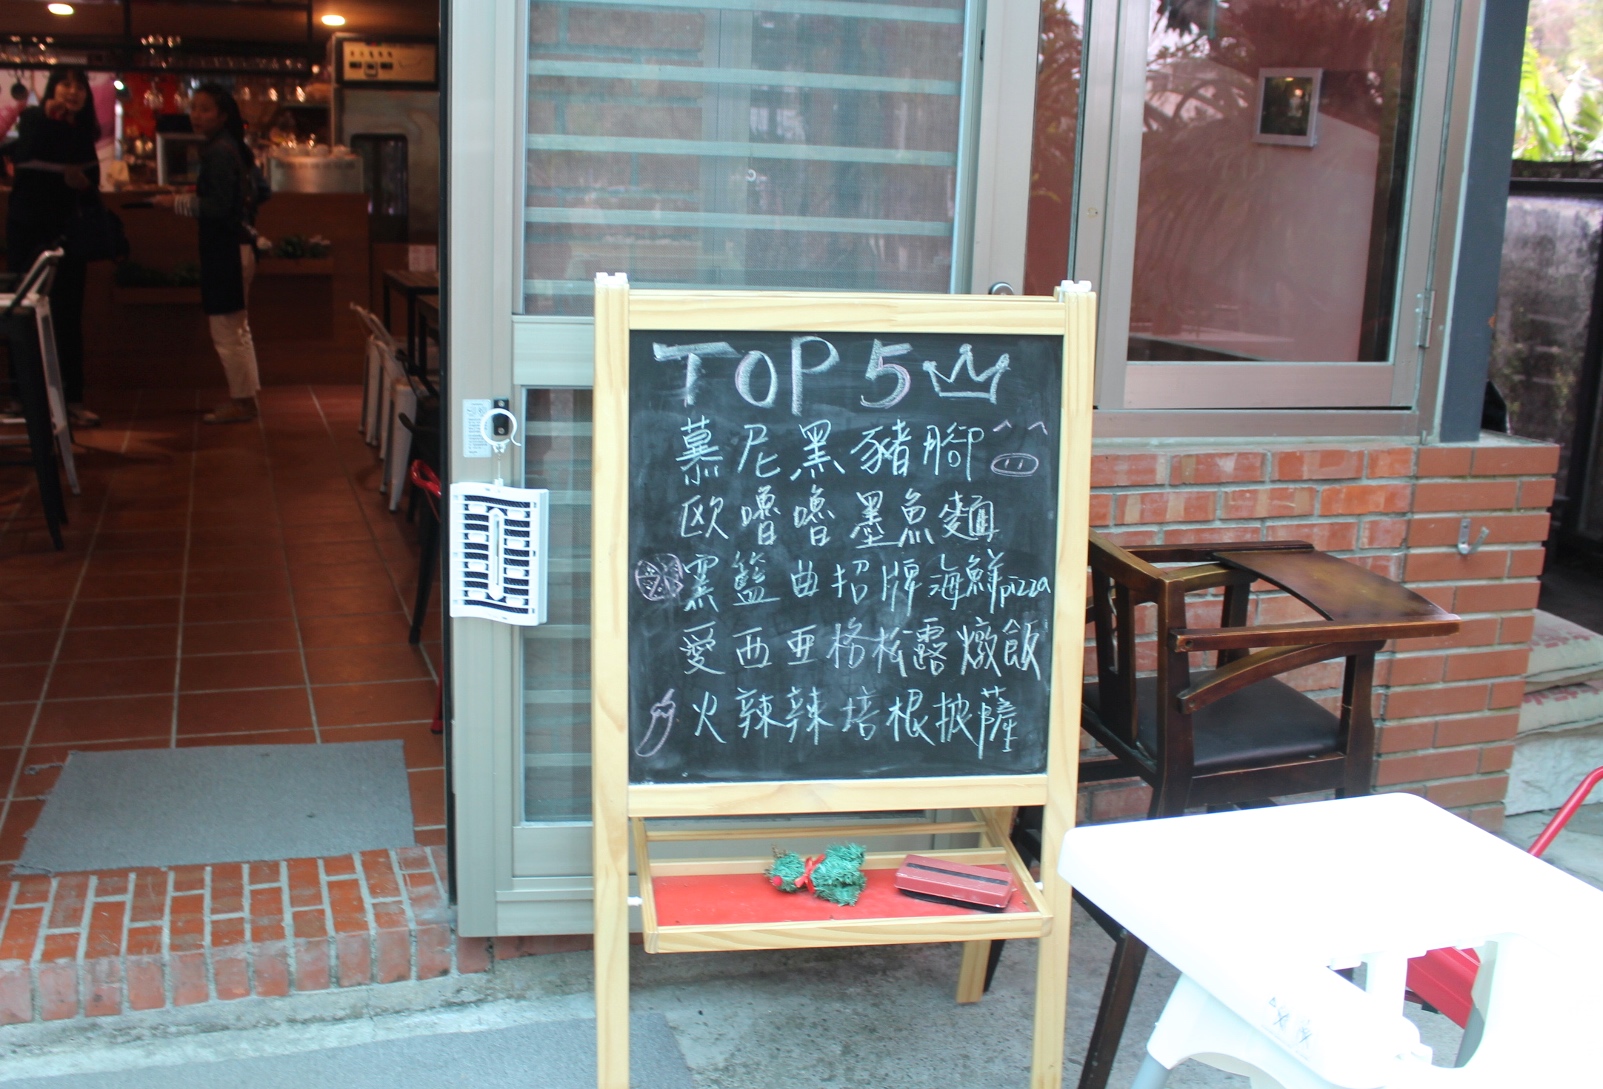 TOP 5
慕尼黑豬腳
欧嚕嚕墨魚麵
窯籃曲招牌海鮮pizza
愛西亜格松露燉飯
火辣辣培根披薩